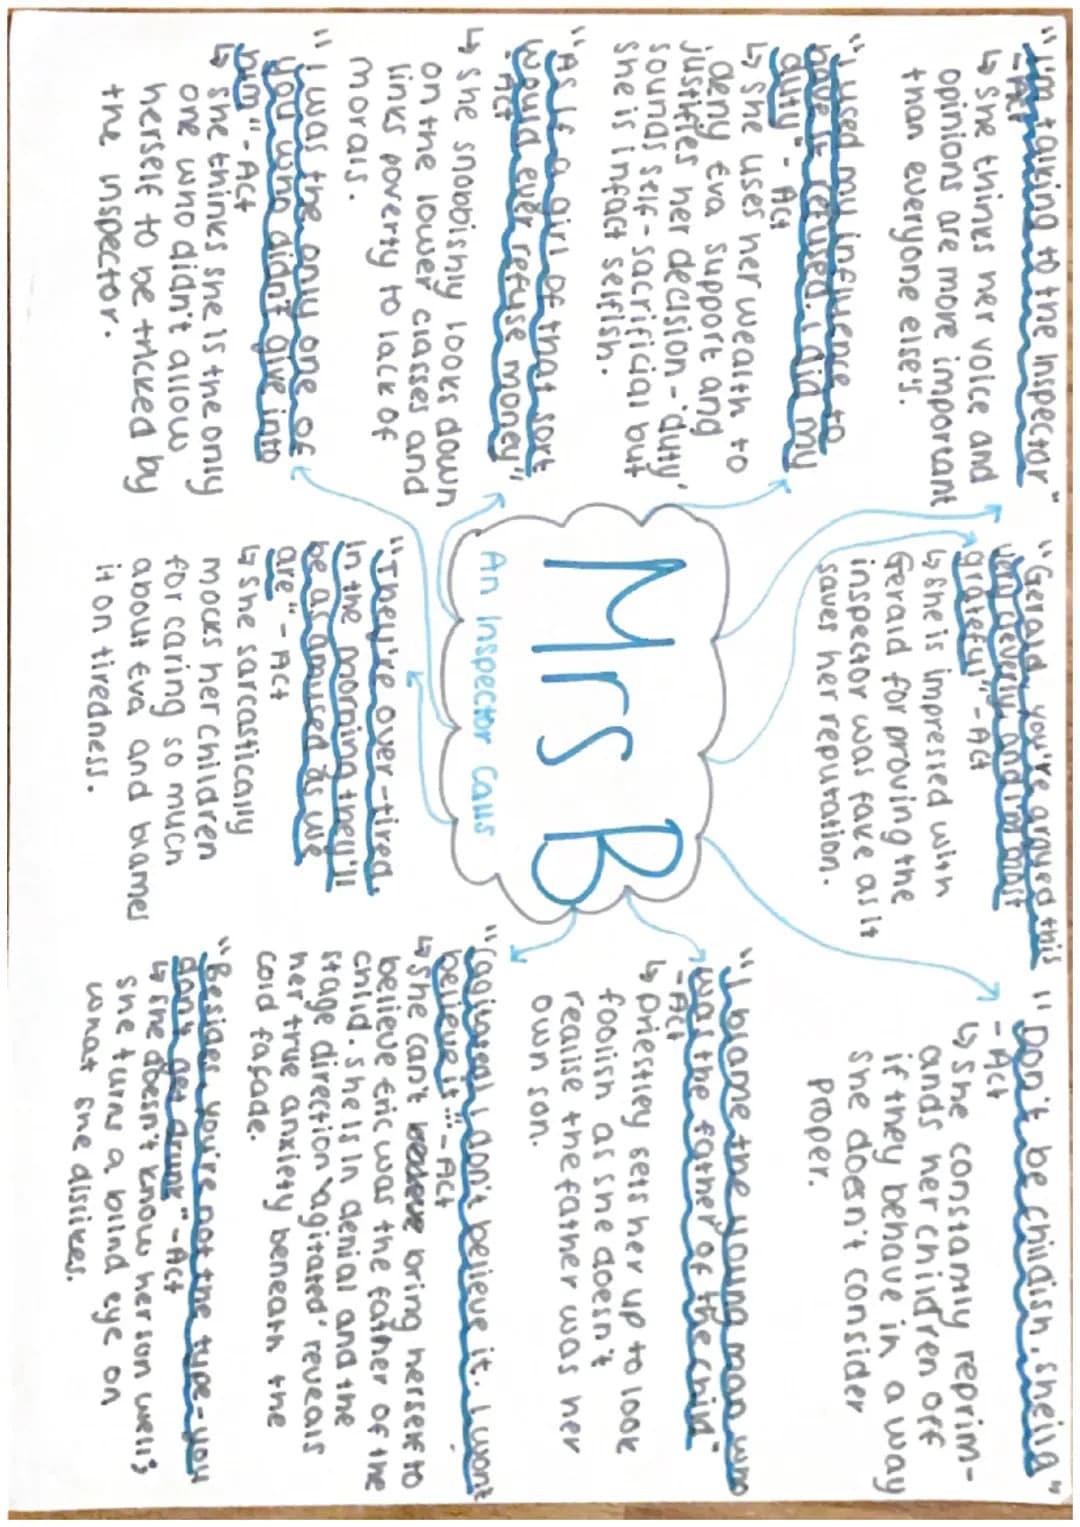 Mrs B
An Inspector Calls
"I'm talking to the Inspector"
- Act
↳ she thinks her voice and
opinions are more important
than everyone else's.
"Gerald, you've argued this
very cleverly and i'm most
grateful" - Act
↳ she is impressed with
Gerald for proving the
inspector was fake as it
saves her reputation.
"Don't be childish, sheila"
- Act
↳ she constantly reprim-
ands her children off
if they behave in a way
she doesn't consider
proper.
"I used my influence to
have it refused. i did my
duty" - Act
↳ she uses her wealth to
deny Eva support and
justifies her decision - 'duty'
sounds self-sacrificial but
she is infact selfish.
"I blame the young man who
was the father of the child"
- Act
↳ Priestley sets her up to look
foolish as she doesn't
realise the father was her
own son.
"As if a girl of that sort
would ever refuse money"
- Act
↳ she snobbishly looks down
on the lower classes and
links poverty to lack of
morals.
"(agitated) I don't believe it. I won't
believe it..." - Act
↳ she can't bring herself to
believe Eric was the father of the
child. she is in denial and the
stage direction 'agitated' reveals
her true anxiety beneath the
cold façade.
"I was the only one of
you who didn't give into
him" - Act
↳ she thinks she is the only
one who didn't allow
herself to be tricked by
the inspector.
"They're over-tired.
In the morning they'll
be as amused as we
are" - Act
↳ she sarcastically
mocks her children
for caring so much
about Eva and blames
it on tiredness.
"Besides, you're not the type - you
don't get drunk" - Act
↳ she doesn't know her son well;
she turns a blind eye on
what she dislikes.